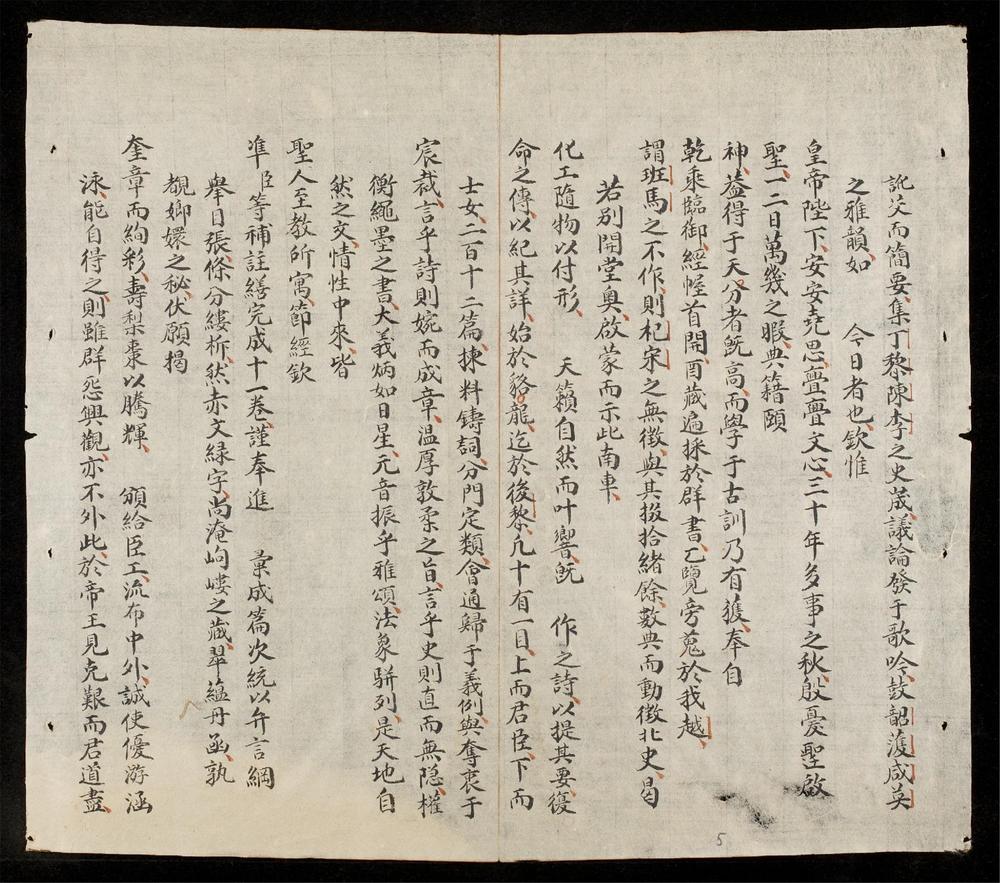 訛父而簡要、集丁黎陳李之史、箴議論發于歌吟、鼓韶濩咸英
之雅韻、如　今日者也、欽惟
皇帝陛下、安安堯思、亹亹文心、三十年多事之秋、殷憂聖啟
聖、一二日萬幾之暇、典籍頤
神、葢得于天分者旣高、而學于古訓乃有獲、奉自
乾乘臨御、經幄首開、酉藏遍採於群書、乙覽旁蒐於我越、
謂班馬之不作、則杞宋之無徵、與其掇拾緒餘、數典而動徵北史、曷
若別開堂奧、啟蒙而示此南車、
化工隨物以付形、　天籟自然而叶響、旣　作之詩、以提其要、復
命之傳、以紀其詳、始於貉龍、迄於後黎、凢十有一目、上而君臣、下而
士女、二百十二篇、揀料鑄詞、分門定類、會通歸于義例、與奪衷于
宸裁、言乎詩則婉而成章、溫厚敦柔之旨、言乎史則直而無隐、權
衡繩墨之書、大義炳如日星、元音振乎雅頌、法象駢列、是天地自
然之文、情性中來、皆
聖人至教所寓、節經欽
準臣等補註繕完成十一卷、謹奉進　彙成篇次統以弁言綱
舉目張、條分縷析、然赤文緑字、尚淹岣嶁之藏、翠蘊丹函、孰
覩嫏嬛之秘、伏願揭
奎章而絢彩、壽梨棗以騰輝、　頒給臣工、流布中外、誠使優游涵
泳、能自得之、則雖群怨興觀、亦不外此、於帝王見克艱而君道盡、
5